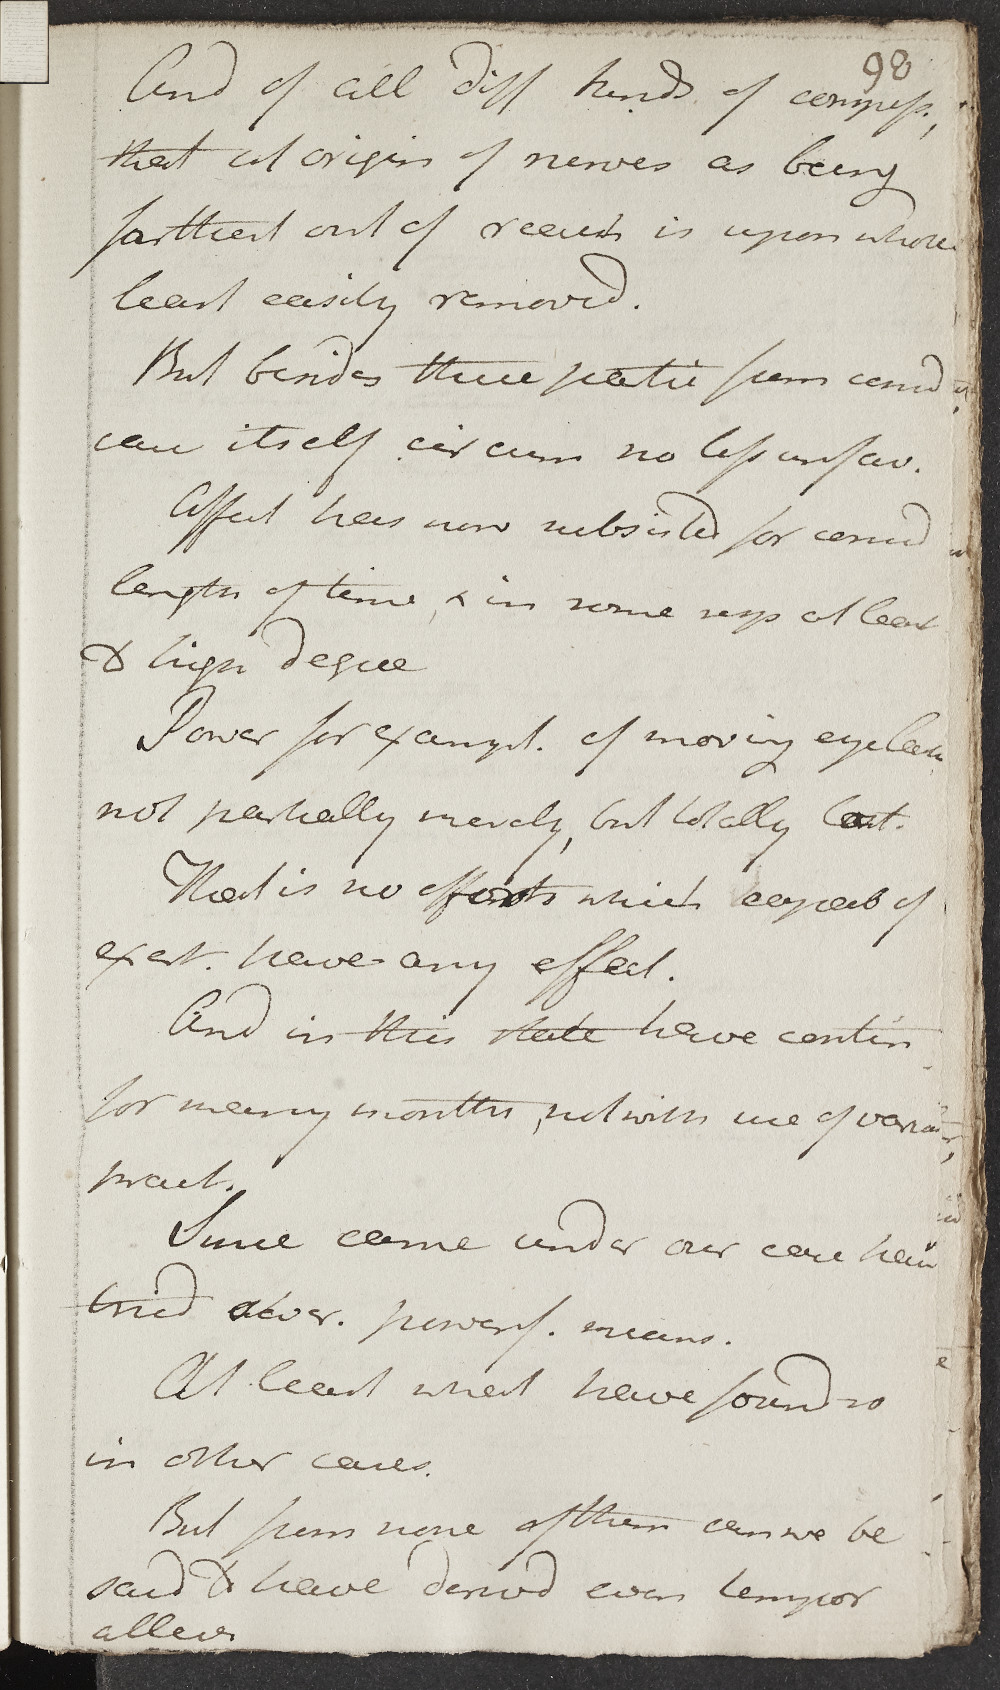 98
And of all diff kinds of compress.,
that at origin of nerves as being
farthest out of reach is upon whole
least easily removed.
But besides these partic from consid of
case itself circum no less unfav.
Affect has now subsisted for consid
length of time, & in some resp at least
to high degree
Power for exampl. of moving eyelash
not partially merely, but totally lost.
That is no efforts which capab of
exert. have any effect.
And in this state have contin
for many months, notwith use of various
pract.
Since came under our care have
tried sever. powerf. means.
At least what have found so
in other cases.
But from none of them can we be
said to have derivd even tempor
allev